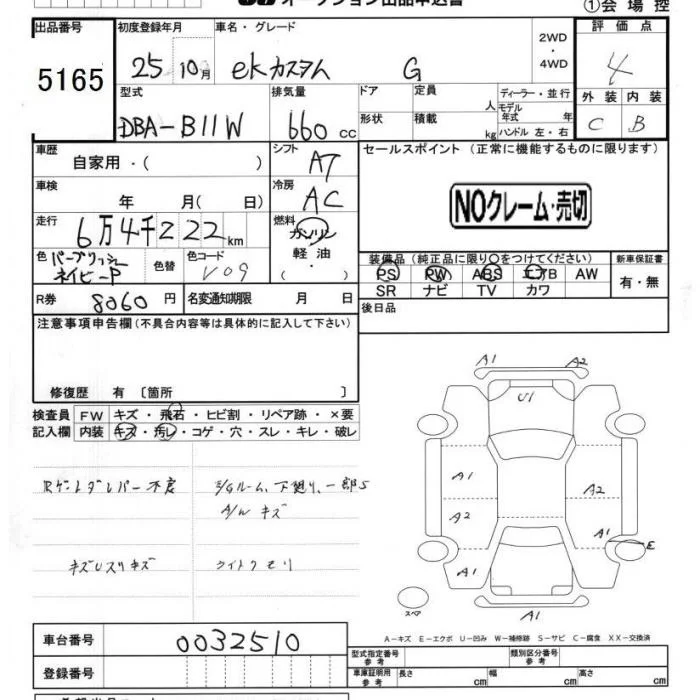 オークション出品申込書
①会場控
出品番号 初度登録年月 車名・グレード 2WD・4WD 評価点
5165 25 10月 eKカスタム G 4
型式 排気量 ドア 定員 人 ディーラー・並行 外装 内装
DBA-B11W 660cc 形状 積載 kg モデル年式 年 ハンドル 左・右 C B
車歴 自家用・( ) シフト AT セールスポイント (正常に機能するものに限ります)
車検 年 月( 日) 冷房 AC
NOクレーム・売切
走行 6万4千222km 燃料 ガソリン 軽油・( )
装備品 (純正品に限り○をつけてください) 新車保証書
色 パープリッシュネイビーP 色替 色コード V09
PS PW ABS エアB AW 有・無
SR ナビ TV カワ
R券 8060円 名変通知期限 月 日 後日品
注意事項申告欄(不具合内容等は具体的に記入して下さい)
修復歴 有 〔箇所 〕
検査員 FW キズ・飛石・ヒビ割・リペア跡・×要
記入欄 内装 キズ・汚レ・コゲ・穴・スレ・キレ・破レ
E/Gルーム、下廻り、一部S
A/W キズ
キズUスリキズ ライトクモリ
A1 A2
U1
A1
A2
A2
A1 E
A1
A1
スペア
A-キズ E-エクボ U-凹み W-補修跡 S-サビ C-腐食 XX-交換済
車台番号 0032510
型式指定番号 参考 類別区分番号 参考
登録番号 車庫証明 参考 長さ cm 幅 cm 高さ cm